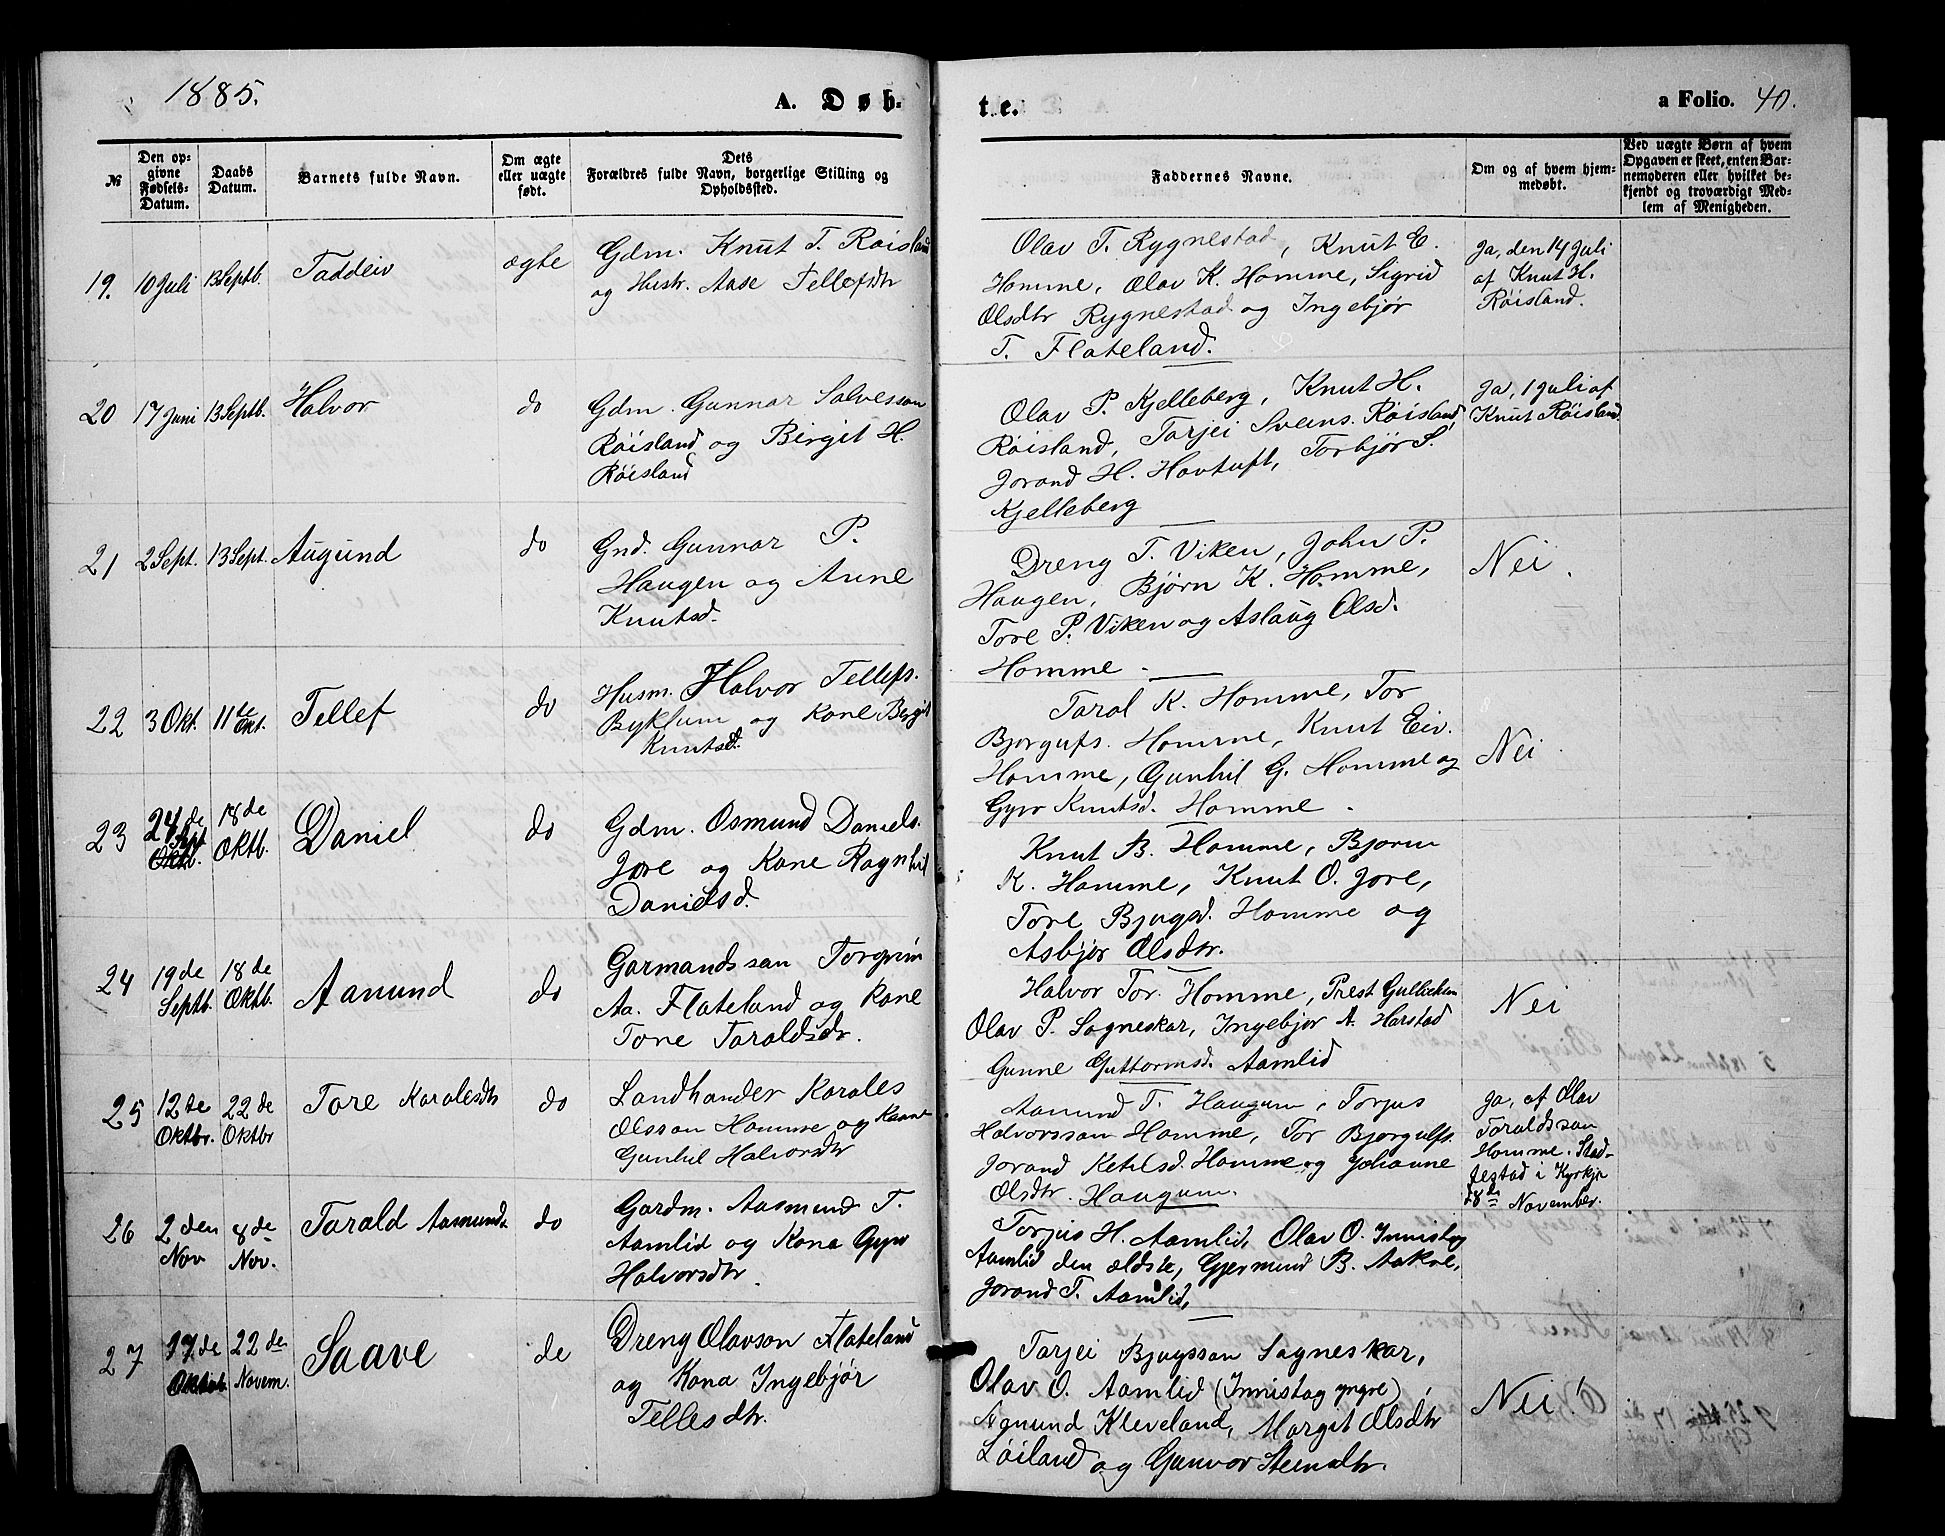 1885.
A. Døb-
t.e.
a Folio. 40.
№
Den op-
givne
Fødsels-
Datum.
Daabs
Datum.
Barnets fulde Navn.
Om ægte
eller uægte
født.
Dets
Forældres fulde Navn, borgerlige Stilling og
Opholdssted.
Faddernes Navne.
Om og af hvem hjem-
medøbt.
Ved uægte Børn af hvem
Opgaven er skeet, enten Bar-
nemoderen eller hvilket be-
kjendt og troværdigt Med-
lem af Menigheden.
19. 10 Juli 13 Septb. Taddeiv ægte
Gdm. Knut T. Røisland
og Hustr. Aase Tellefsdtr
Olav T. Rygnestad, Knut E.
Homme, Olav K. Homme, Sigrid
Olsdtr Rygnestad og Ingebjør
T. Flateland.
Ja, den 14 Juli
af Knut H.
Røisland.
20 17 Juni 13 Septb. Halvor do
Gdm. Gunnar Salvesson
Røisland og Birgit H.
Røisland
Olav P. Kjelleberg, Knut H.
Røisland, Tarjei Sveins. Røisland,
Jorand H. Hovtuft, Torbjør S.
Kjelleberg
Ja, 1 Juli af
Knut Røisland
21 2 Sept. 13 Sept. Augund do
Gnd. Gunnar P.
Haugen og Anne
Knutsd.
Dreng T. Viken, John P.
Haugen, Bjørn K. Homme,
Tore P. Viken og Aslaug Olsd.
Homme -
Nei.
22 3 Okt. 11te Okt. Tellef do
Husm. Halvor Tellefs.
Byklum og Kone Birgit
Knutsd.
Tarol K. Homme, Tor
Bjorgufs. Homme, Knut Eiv.
Homme, Gunhil G. Homme og
Gyro Knutsd. Homme.
Nei.
23 24de Sept 18de Oktb. Daniel do
Gdm. Osmund Daniels.
Jore og Kone Ragnhil
Danielsd.
Knut B. Homme, Bjorn
K. Homme, Knut O. Jore,
Tore Bjugsd. Homme og
Asbjor Olsdtr.
24 19de Septb. 18de Oktb. Aanund do
Garmandssan Torgrim
Aa. Flateland og Kone
Tone Taraldsdr.
Halvor Tor. Homme, Prest
Olav P. Sagneskar, Ingebjor A. Harstad
Gunne Guttormsd. Aamlid
Nei
25 12te Oktbr. 22de Oktbr Tore Karolesdtr do
Landhander Karoles
Olsson Homme og Kaane
Gunhil Halvorsdtr
Aanund T. Haugum, Torjus
Halvorssan Homme, Tor Bjorgulfs.
Jorand Ketilsd. Homme og Johanne
Olsdtr. Haugum.
Ja, af Olav
Taraldssan
Homme. Stad-
festad i Kyrkja
November.
26 2den Nov 8de Nov. Tarald Aasmunds do
Gardm. Aasmund T.
Aamlid og Kona Gyro
Halvorsdtr.
Torjus H. Aamlid, Olav O. Innistog
Aamlid den ældste, Gjermund B. Aakre,
Jorand T. Aamlid,
27 22de Novem. Saave do
Dreng Olavson Flateland
og Kona Ingebjør
Tellesdtr.
Tarjei Bjugssan Sagneskar,
Olav O. Aamlid (Innistog yngre),
Kleveland, Margit Olsdtr
Løiland og Gunvor Steinsdtr.
Nei!